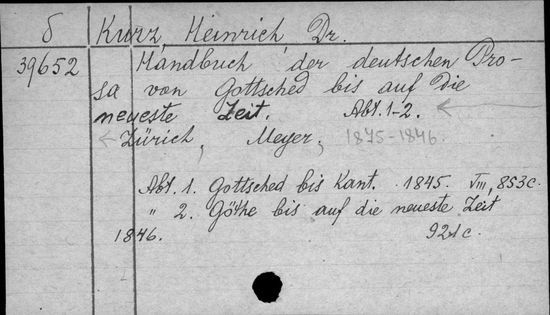 δ Kurz, Heinrich Dr.
39652 Handbuch der deutschen Pro-
sa von Gottsched bis auf die
neueste Zeit. Abt. 1-2.
Zürich, Meyer, 1845-1846.
Abt. 1. Gottsched bis Kant. 1845. VIII, 853c.
" 2. Göthe bis auf die neueste Zeit
1846. 921c.